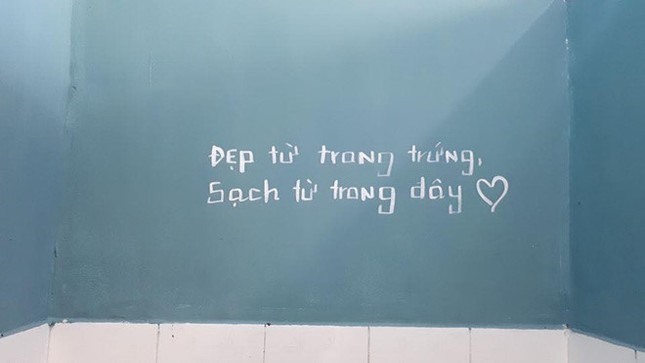 Đẹp từ trong trứng,
Sạch từ trong đây ♡